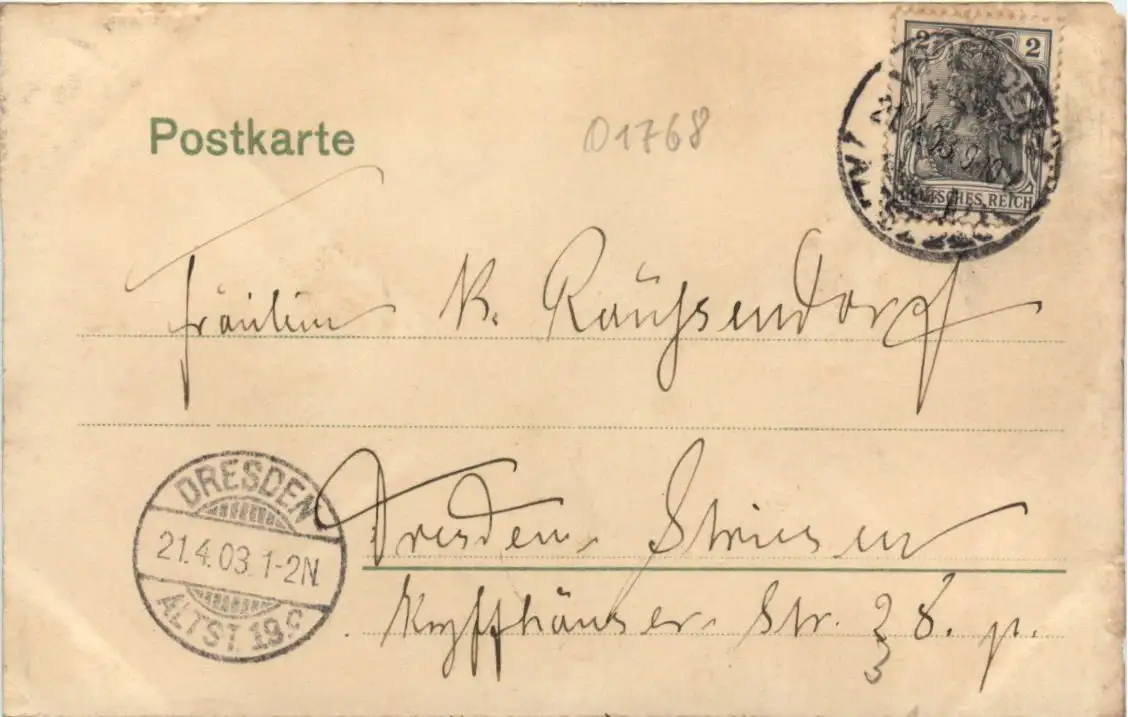 2 2
DEUTSCHES REICH
Postkarte
01768
Fräulein K. Räußendorf
Dresden Striesen
Kyffhäuser Str. 28. p.
DRESDEN
21.4.03. 1-2N.
ALTST. 19.c